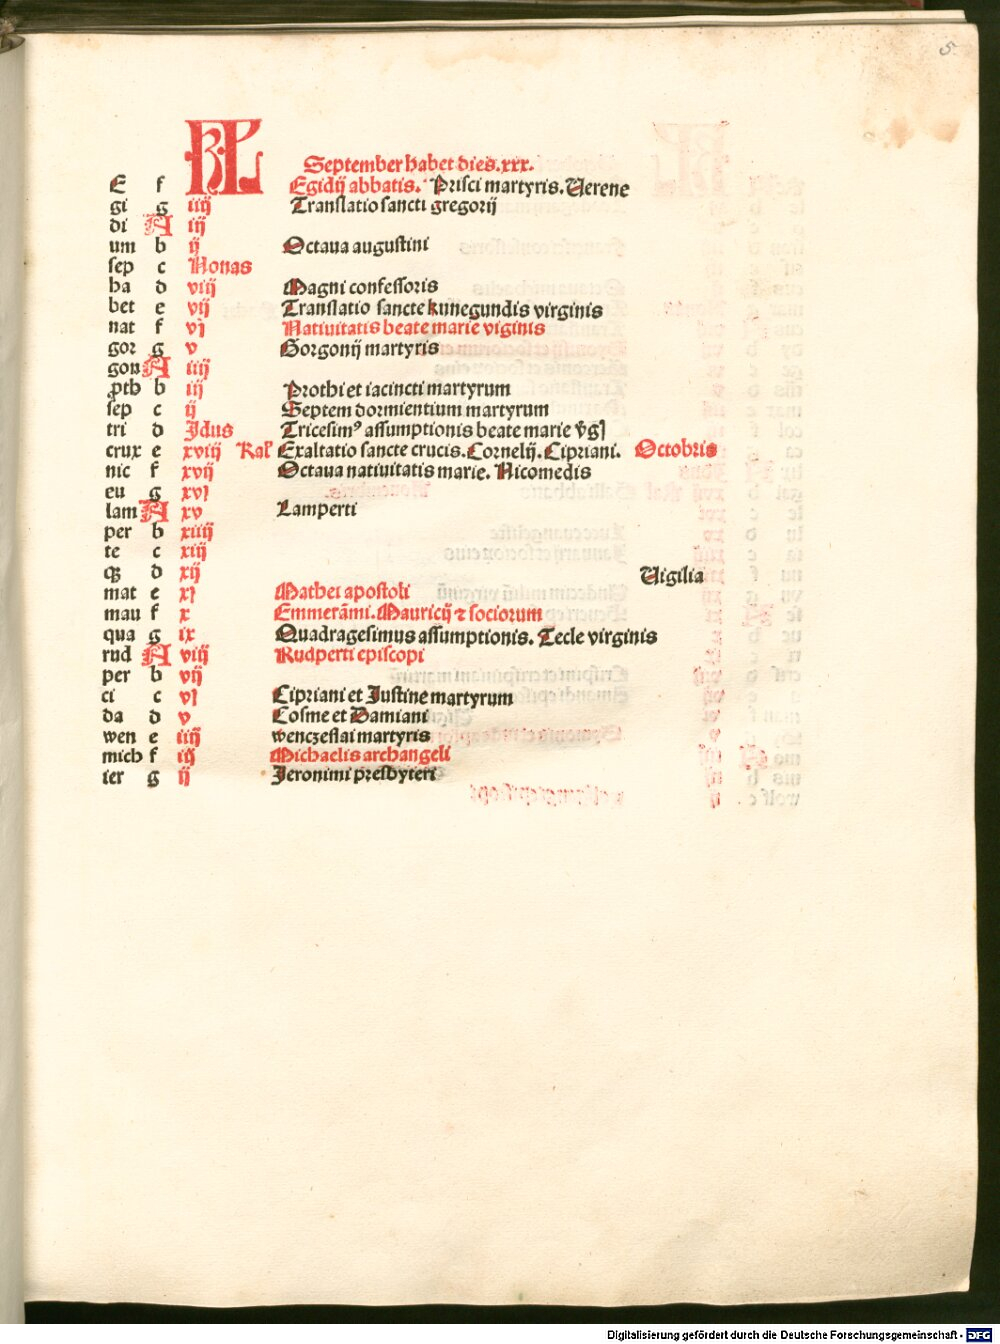 5
KL
September habet dies.xxx.
E f Egidij abbatis. Prisci martyris. Verene
gi g iiij Translatio sancti gregorij
di A iij
um b ij Octaua augustini
sep c Nonas
ha d viij Magni confessoris
bet e vij Translatio sancte kunegundis virginis
nat f vj Natiuitatis beate marie viginis
gor g v Gorgonij martyris
gon A iiij
ꝓth b iij Prothi et iacincti martyrum
sep c ij Septem dormientium martyrum
tri d Idus Tricesimꝰ assumptionis beate marie v̄gĩ
crux e xviij Kal' Exaltatio sancte crucis. Cornelij. Cipriani. Octobris
nic f xvij Octaua natiuitatis marie. Nicomedis
eu g xvj
lam A xv Lamperti
per b xiiij
te c xiij
qꝫ d xij Vigilia
mat e xj Mathei apostoli
mau f x Emmerãmi. Mauricij ⁊ sociorum
qua g ix Quadragesimus assumptionis. Tecle virginis
rud A viij Rudperti episcopi
per b vij
ci c vj Cipriani et Justine martyrum
da d v Cosme et Damiani
wen e iiij wenczeslai martyris
mich f iij Michaelis archangeli
ier g ij Jeronimi presbyteri
Digitalisierung gefördert durch die Deutsche Forschungsgemeinschaft - DFG